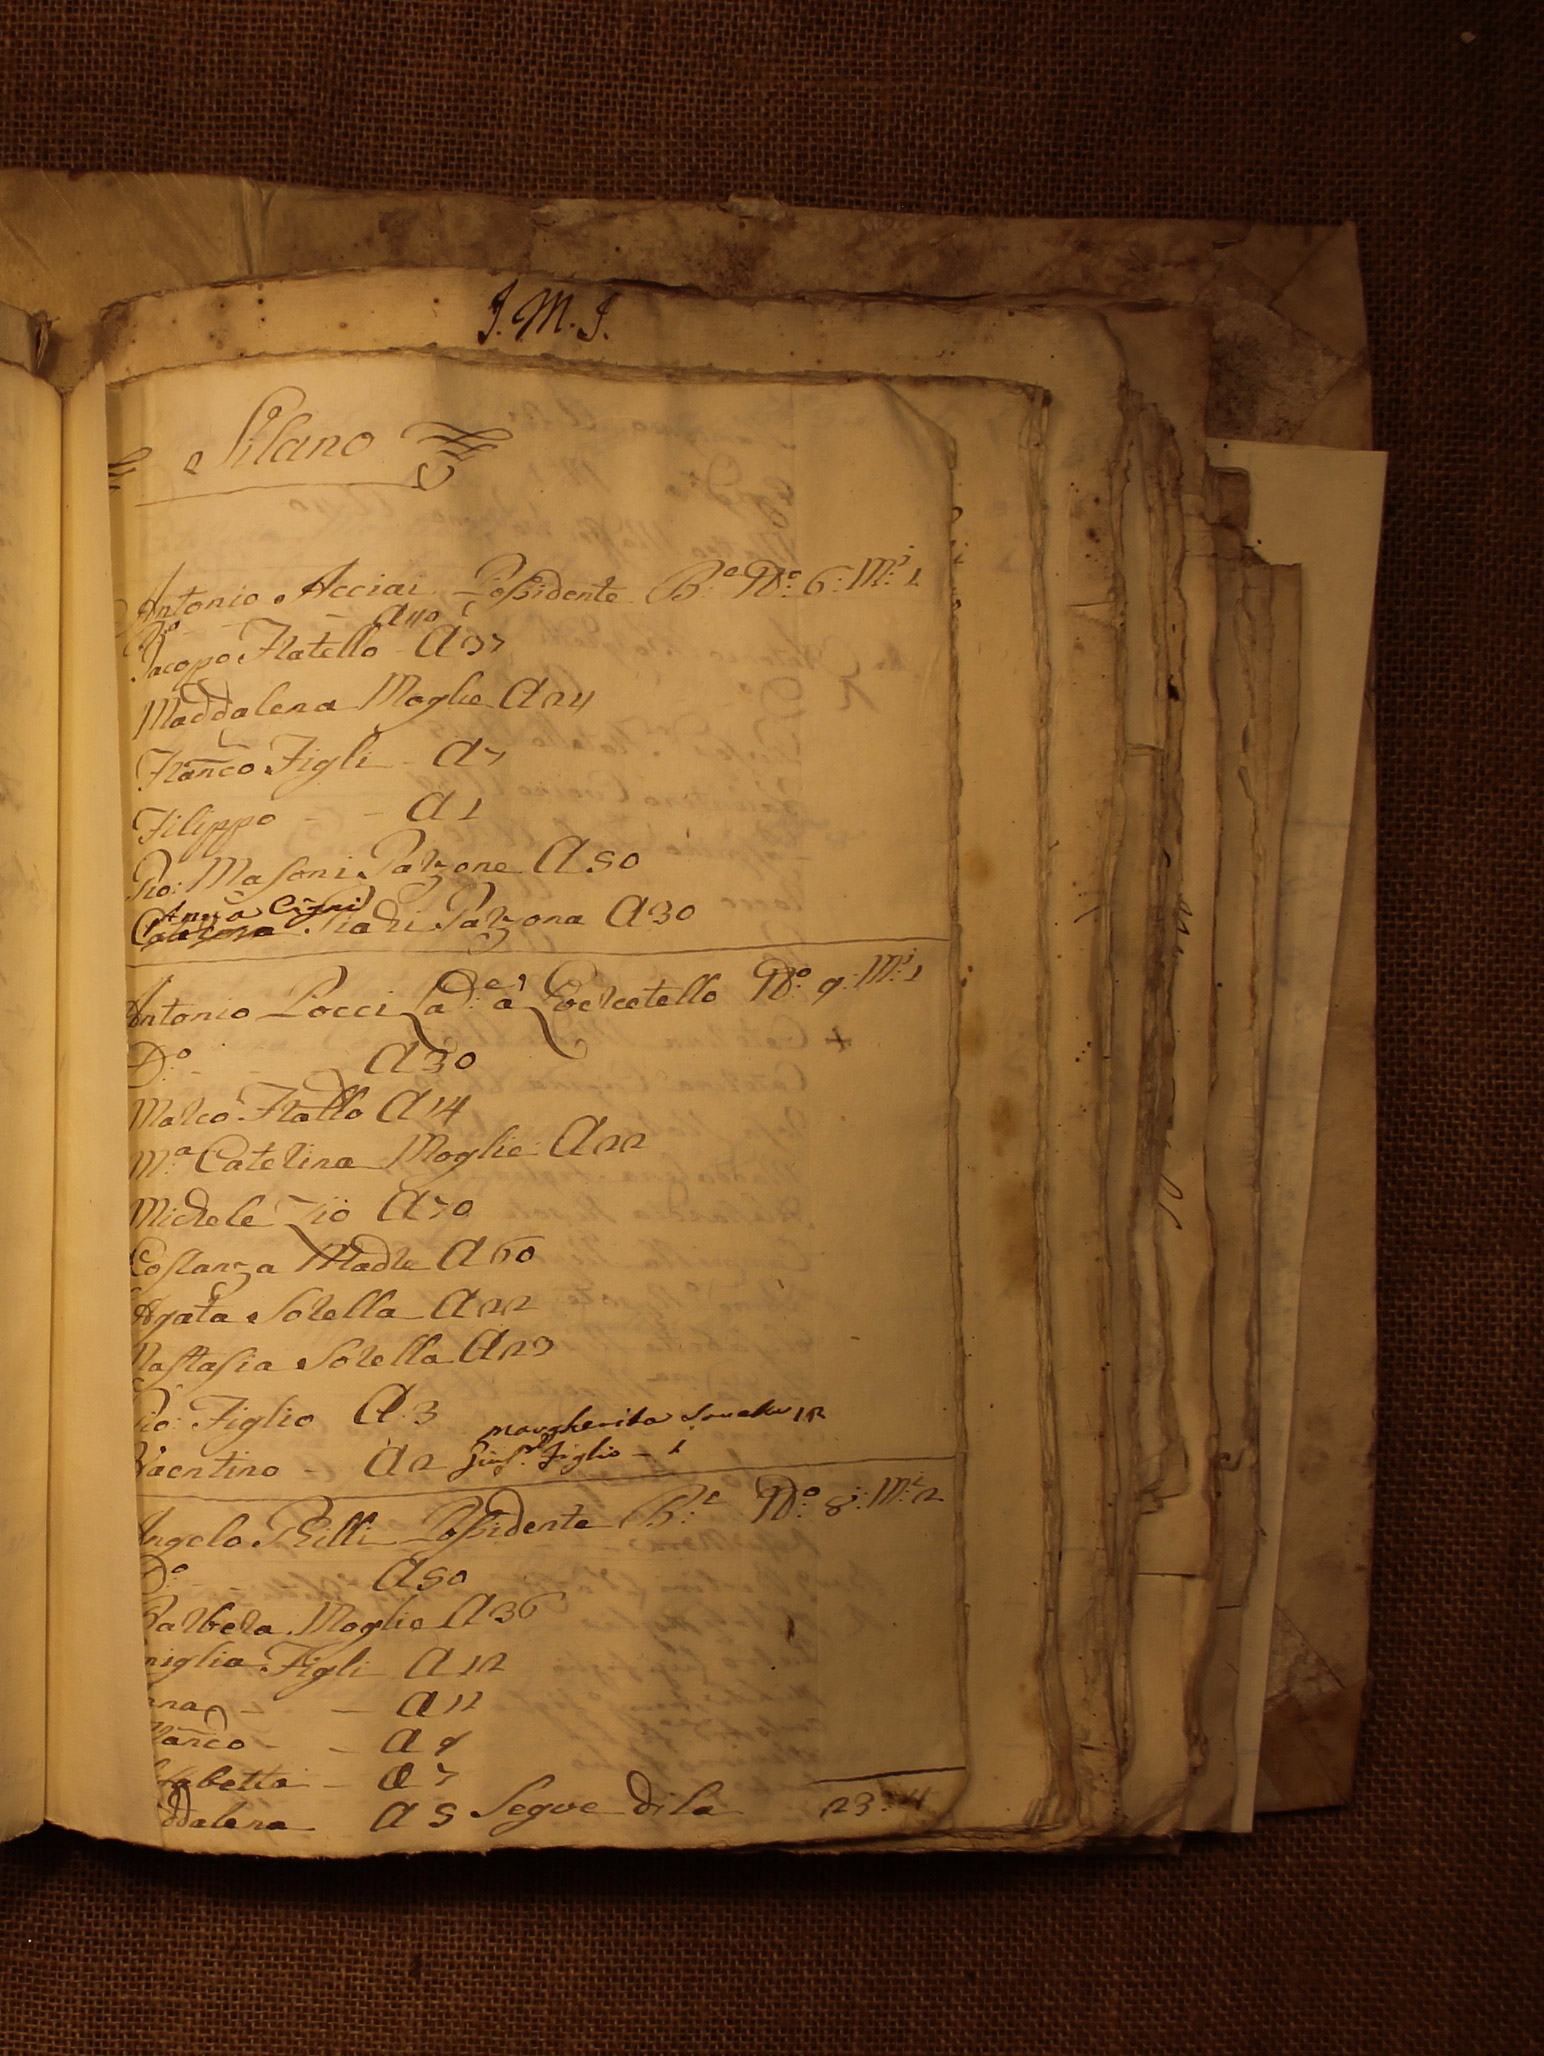 J. M. J.
Silano
Antonio Acciai Possidente B.e N.o 6: M.i 1
D.o - - - A 40
Jacopo Fratello - A 37
Maddalena Moglie A 24
Franco Figli - A 7
Filippo - - A 1
Gio: Masoni Garzone A 50
Anna Cigni
Caterina Nari Garzona A 30
Antonio Pocci La.e a N.o 9: M.i 1
D.o - - A 30
Marco Frallo A 14
M.a Caterina Moglie A 22
Michele Zio A 70
Costanza Madre A 60
Agata Sorella A 22
Nastasia Sorella A 23
Gio: Figlio A 3
Margherita Sorella 12
Vaentino - A 2 Figlio - 1
Angelo Billi Possidente B.e N.o 8: M.i 2
D.o - - - A 50
Barbera Moglie A 36
miglia Figli A 12
nna - - A 11
Franco - - A 9
sabetta - A 7
ddalena A 5 Segue di la 23: 4